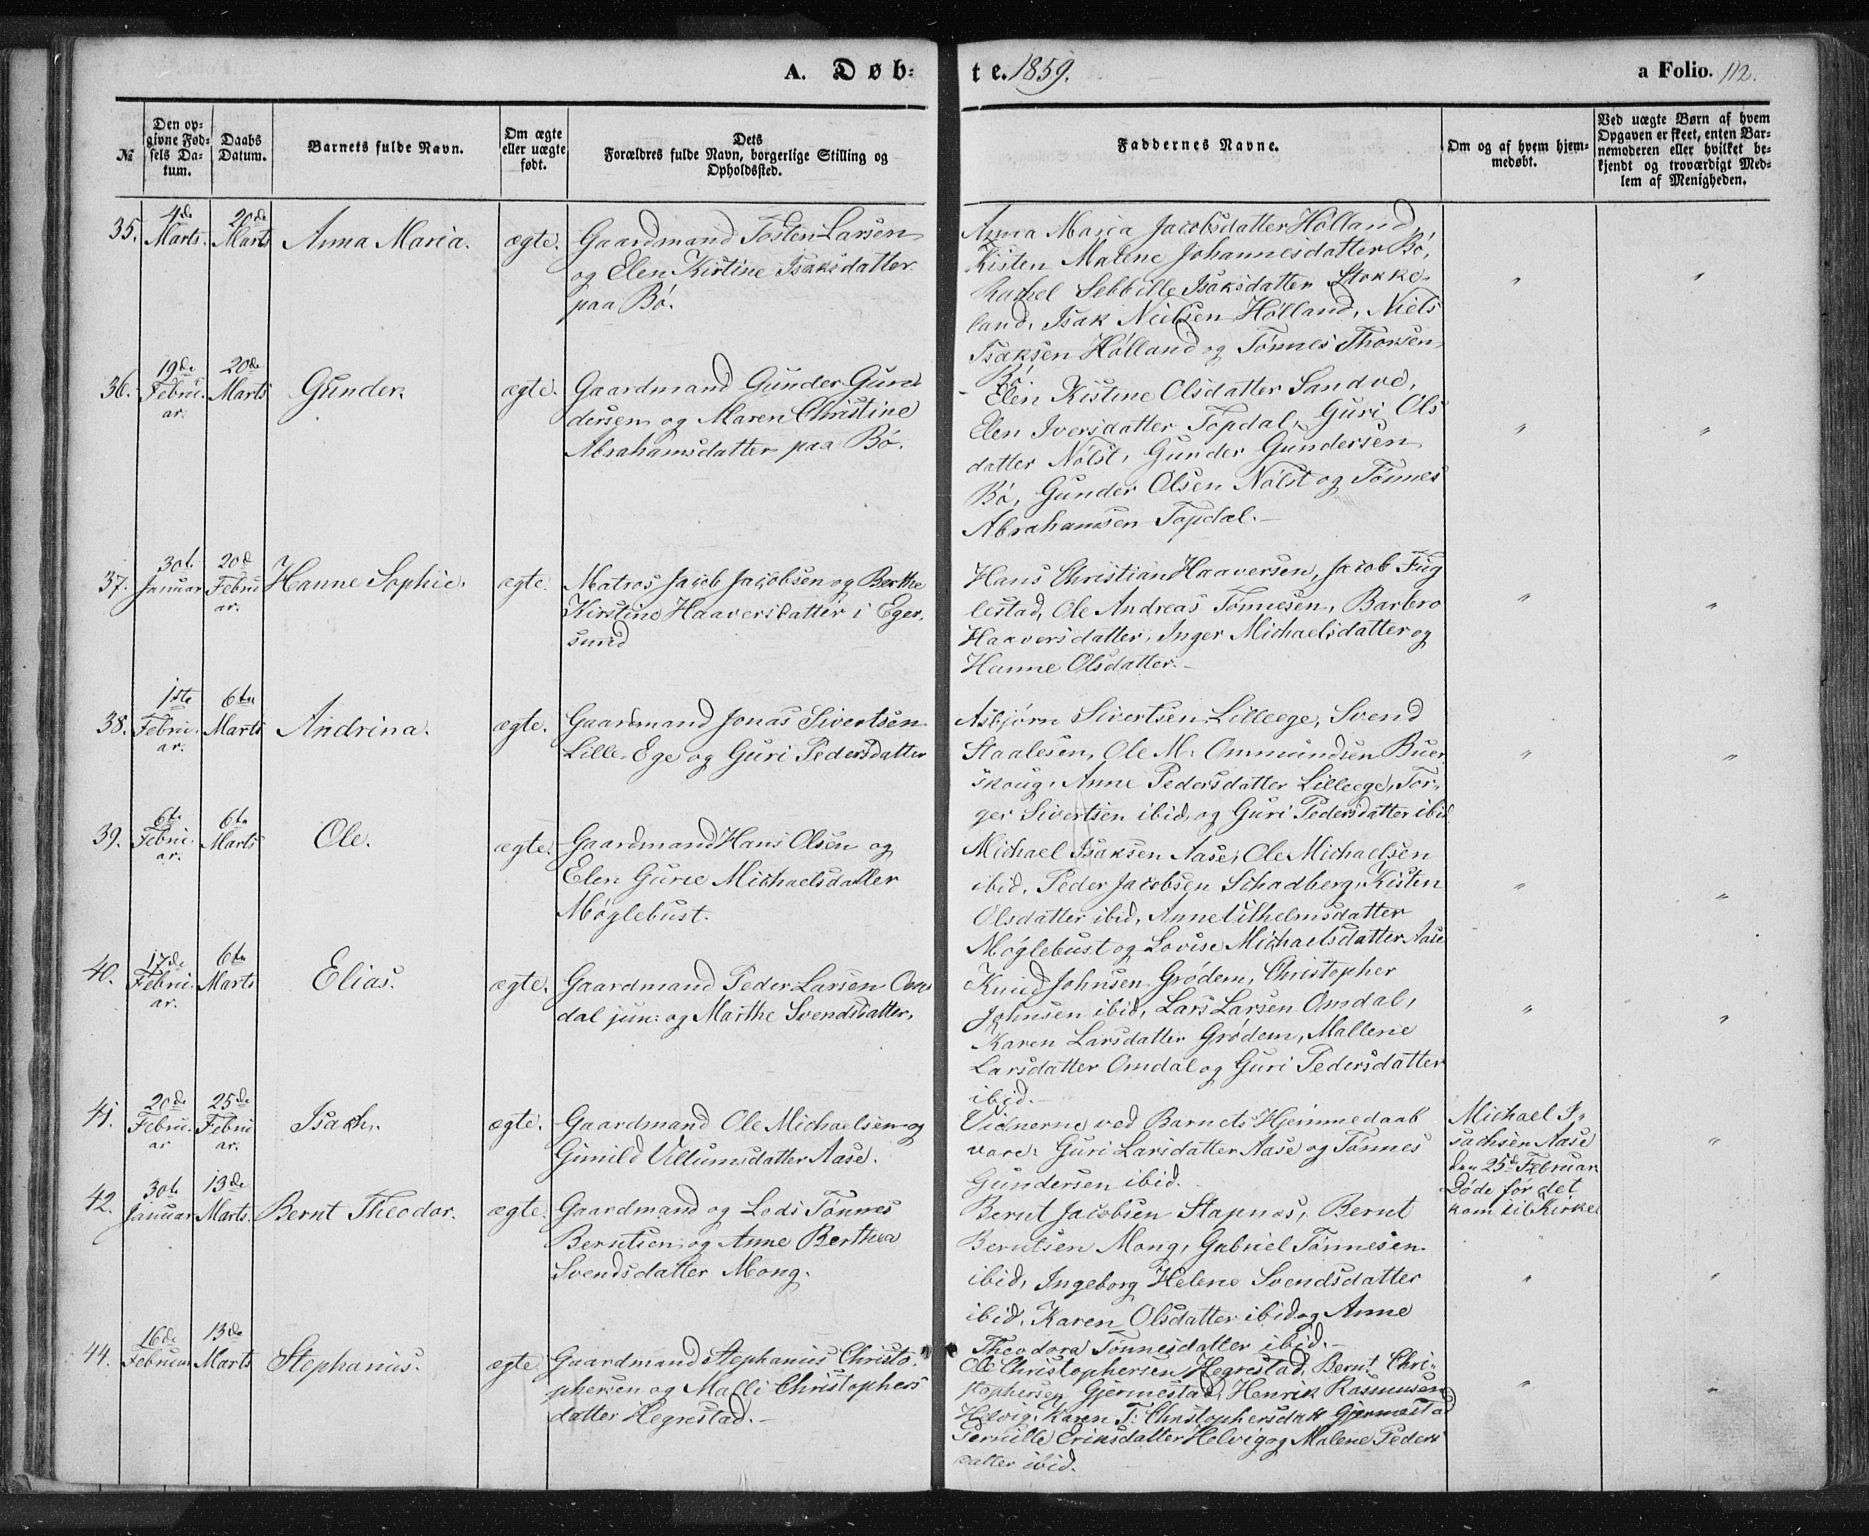 A. Døb-
te. 1859.
a Folio. 112.
№
Den op-
givne Fød-
sels Da-
tum.
Daabs
Datum.
Barnets fulde Navn.
Om ægte
eller uægte
født.
Dets
Forældres fulde Navn, borgerlige Stilling og
Opholdssted.
Faddernes Navne.
Om og af hvem hjem-
medøbt.
Ved uægte Børn af hvem
Opgaven er skeet, enten Bar-
nemoderen eller hvilket be-
kjendt og troværdigt Med-
lem af Menigheden.
35.
4de
Marts.
20de
Marts
Anna Maria.
ægte.
Gaardmand Tosten Larsen
og Elen Kirstine Isaksdatter
paa Bø.
Anna Maria Jacobsdatter Hølland,
Kisten Malene Johannesdatter Bø,
Rachel Sebbille Isaksdatter Stokke-
land, Isak Nielsen Hølland, Niels
Isaksen Hølland og Tønnes Thorsen
Bø.
"
"
36.
19de
Febru-
ar.
20de
Marts
Gunder.
ægte.
Gaardmand Gunder Gun-
dersen og Maren Christine
Abrahamsdatter paa Bø.
Elen Kistine Olsdatter Sandve,
Elen Iversdatter Topdal, Guri Ols
datter Nölst, Gunder Gundersen
Bø, Gunder Olsen Nölst og Tønnes
Abrahamsen Topdal.-
"
"
37.
30t
Januar
20d
Febru
ar.
Hanne Sophie.
ægte.
Matros Jacob Jacobsen og Berthe
Kirstine Haaversdatter i Eger-
sund
Hans Christian Haaversen, Jacob Fug
lestad, Ole Andreas Tønnesen, Barbro
Haaversdatter, Inger Michaelsdatter og
Hanne Olsdatter.-
"
"
38.
1ste
Febru-
ar.
6te
Marts
Andrina.
ægte.
Gaardmand Jonas Sivertsen
Lille-Ege og Guri Pedersdatter
Asbjørn Sivertsen Lilleege, Svend
Staalesen, Ole M. Ommundsen Buer-
skoug, Anne Pedersdatter Lilleege, Tor-
ger Sivertsen ibid. og Guri Pedersdatter ibid
"
"
39.
6te
Febru-
ar.
6te
Marts
Ole.
ægte.
Gaardmand Hans Olsen og
Elen Gurie Michaelsdatter
Møglebust.
Michael Isaksen Aase, Ole Michaelsen
ibid, Peder Jacobsen Schadberg, Kisten
Olsdatter ibid, Anne Vilhelmsdatter
Møglebust og Lovise Michaelsdatter Aase
"
"
40.
17de
Febru-
ar.
6te
Marts
Elias.
ægte.
Gaardmand Peder Larsen Om-
dal jun: og Marthe Svendsdatter,
Knud Johnsen Grødem, Christopher
Johnsen ibid, Lars Larsen Omdal,
Karen Larsdatter Grødem, Mallene
Larsdatter Omdal og Guri Pedersdatter
ibid.-
"
"
41.
20de
Febru-
ar
25de
Febru
ar.
Isach.
ægte.
Gaardmand Ole Michaelsen og
Gunild Villumsdatter Aase.
Vidnerne ved Barnets Hjemmedaab
vare: Guri Larsdatter Aase og Tønnes
Gundersen ibid.
Michael I-
sachsen Aase
den 25de Februar
Døde før det
kom til Kirke
"
42.
30t
Januar
13de
Marts.
Bernt Theodor.
ægte.
Gaardmand og Lods Tønnes
Berntsen og Anne Berthea
Svendsdatter Mong.
Bernt Jacobsen Stapnes, Bernt
Berntsen Mong, Gabriel Tønnesen
ibid, Ingeborg Helene Svendsdatter
ibid, Karen Olsdatter ibid og Anne
Theodora Tønnesdatter ibid.-
"
"
44.
16de
Februar
13de
Marts
Stephanius.
ægte
Gaardmand Stephanius Christo-
phersen og Malli Christophers
datter Hegrestad.-
Ole Christophersen Hegrestad, Bernt Chri-
stophersen Gjermestad, Henrik Rasmussen
Helvig, Karen T: Christophersdatt Gjermestad
Pernille Eriksdatter Helvig og Malene Peders
datter ibid.
"
"